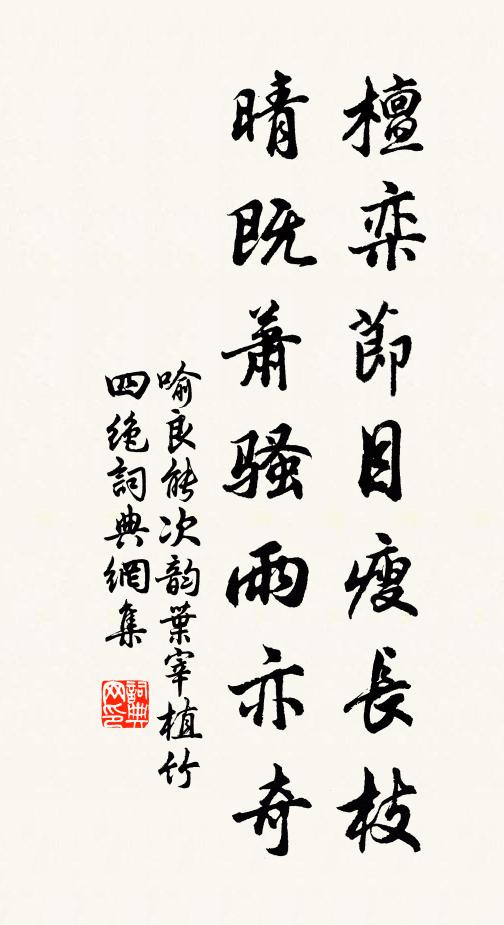 檀栾節目瘦長枝
晴既蕭骚雨亦奇
喻良能次韵葉宰植竹
四绝詞典網集
詞典
网印